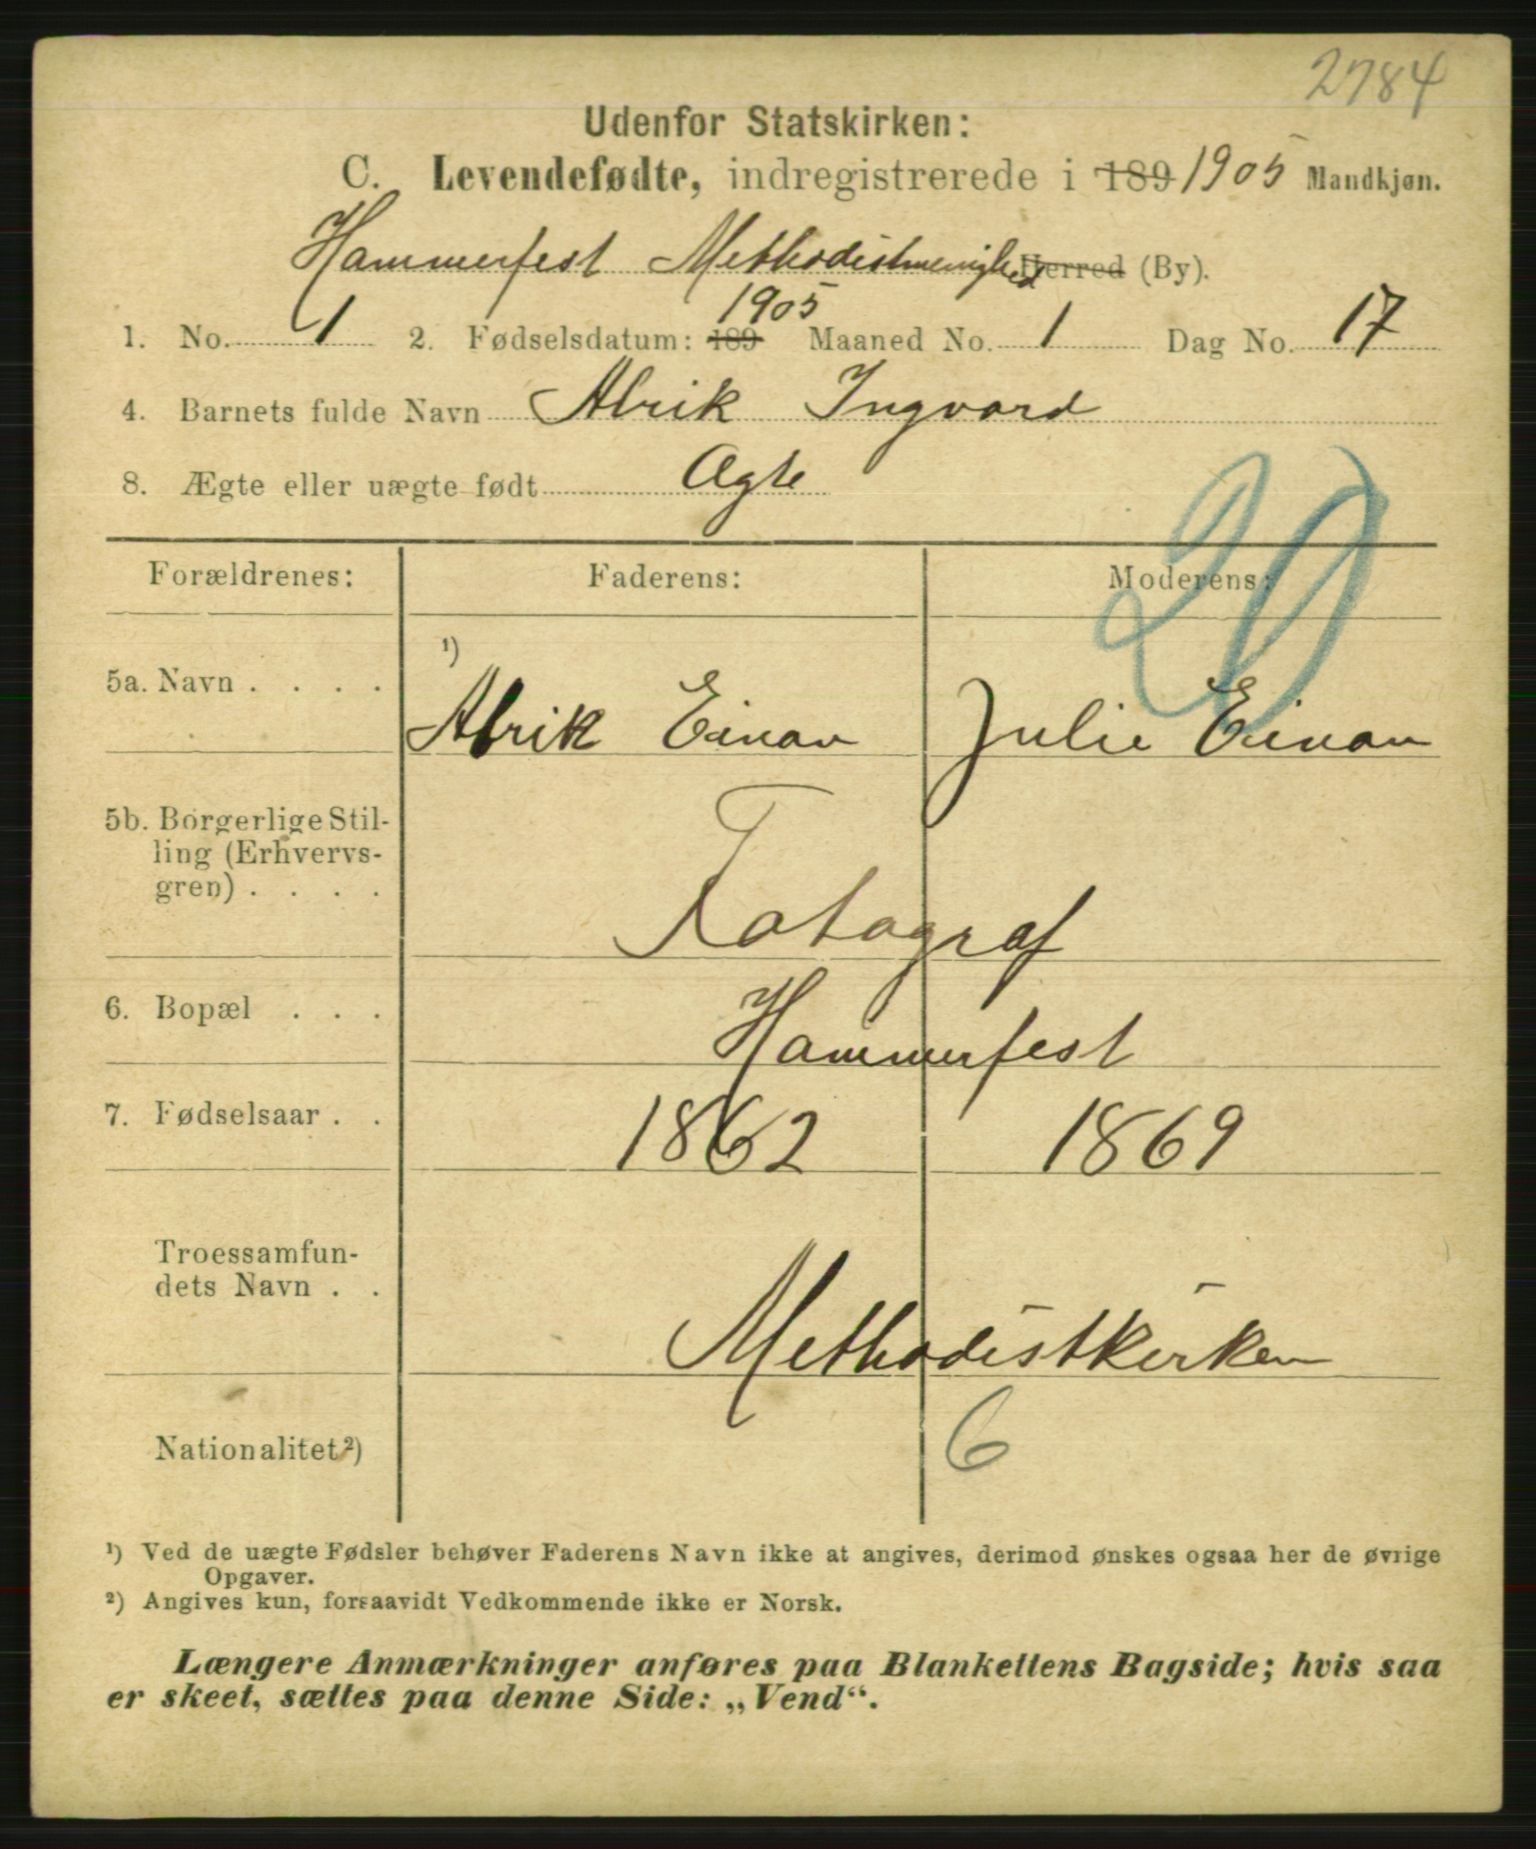 2784
Udenfor Statskirken:
C. Levendefødte, indregistrerede i 189 1905 Mandkjøn.
Hammerfest Methodistmenighed Herred (By).
1. No. 1 2. Fødselsdatum: 189 1905 Maaned No. 1 Dag No. 17
4. Barnets fulde Navn Alrik Ingvard
8. Ægte eller uægte født Ægte
20
Forældrenes: Faderens: Moderens:
5a. Navn . . . . ¹) Alrik Einan Julie Einan
5b. Borgerlige Stil-
ling (Erhvervs-
gren) . . . . Fotograf
6. Bopæl . . . Hammerfest
7. Fødselsaar . . 1862 1869
Troessamfun-
dets Navn . . Methodistkirken
Nationalitet²) 6
¹) Ved de uægte Fødsler behøver Faderens Navn ikke at angives, derimod ønskes ogsaa her de øvrige
Opgaver.
²) Angives kun, forsaavidt Vedkommende ikke er Norsk.
Længere Anmærkninger anføres paa Blankettens Bagside; hvis saa
er skeet, sættes paa denne Side: „Vend“.